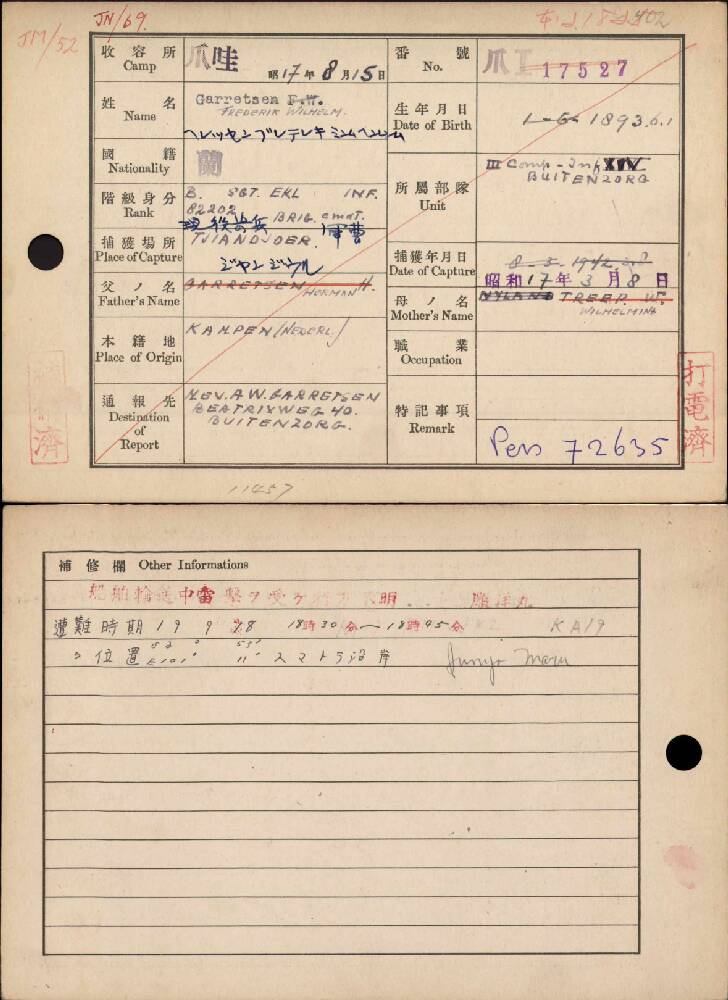 JN/69.
JM/52
402
收容所 Camp 爪哇 昭17年8月15日
番號 No. 爪 I 17527
姓名 Name Garretsen F.W.
FREDERIK WILHELM.
生年月日 Date of Birth 1-6-1893.6.1
國籍 Nationality 蘭
階級身分 Rank B. SGT. EKL INF.
82202 BRIG. cmdt.
軍曹
所屬部隊 Unit III Comp-Inf XIV
BUITENZORG
捕獲場所 Place of Capture TJIANDJOER.
ジヤンジウル
捕獲年月日 Date of Capture 8-3-1942
昭和17年3月8日
父ノ名 Father's Name GARRETSEN H.
HERMAN
母ノ名 Mother's Name NYLAND TREEP. W.
WILHELMINA
本籍地 Place of Origin KAMPEN (NEDERL.)
職業 Occupation
通報先 Destination of Report MEV. A.W. GARRETSEN
BEATRIXWEG 40.
BUITENZORG.
特記事項 Remark Pers 72635
打電濟
濟
11457
補修欄 Other Informations
船舶輸送中雷擊ヲ受ケ 明 順洋丸
遭難時期 19 9 18 18時30分〜18時45分 KA19
〃位置 E101° 11' 53' スマトラ沿岸 Junyo Maru